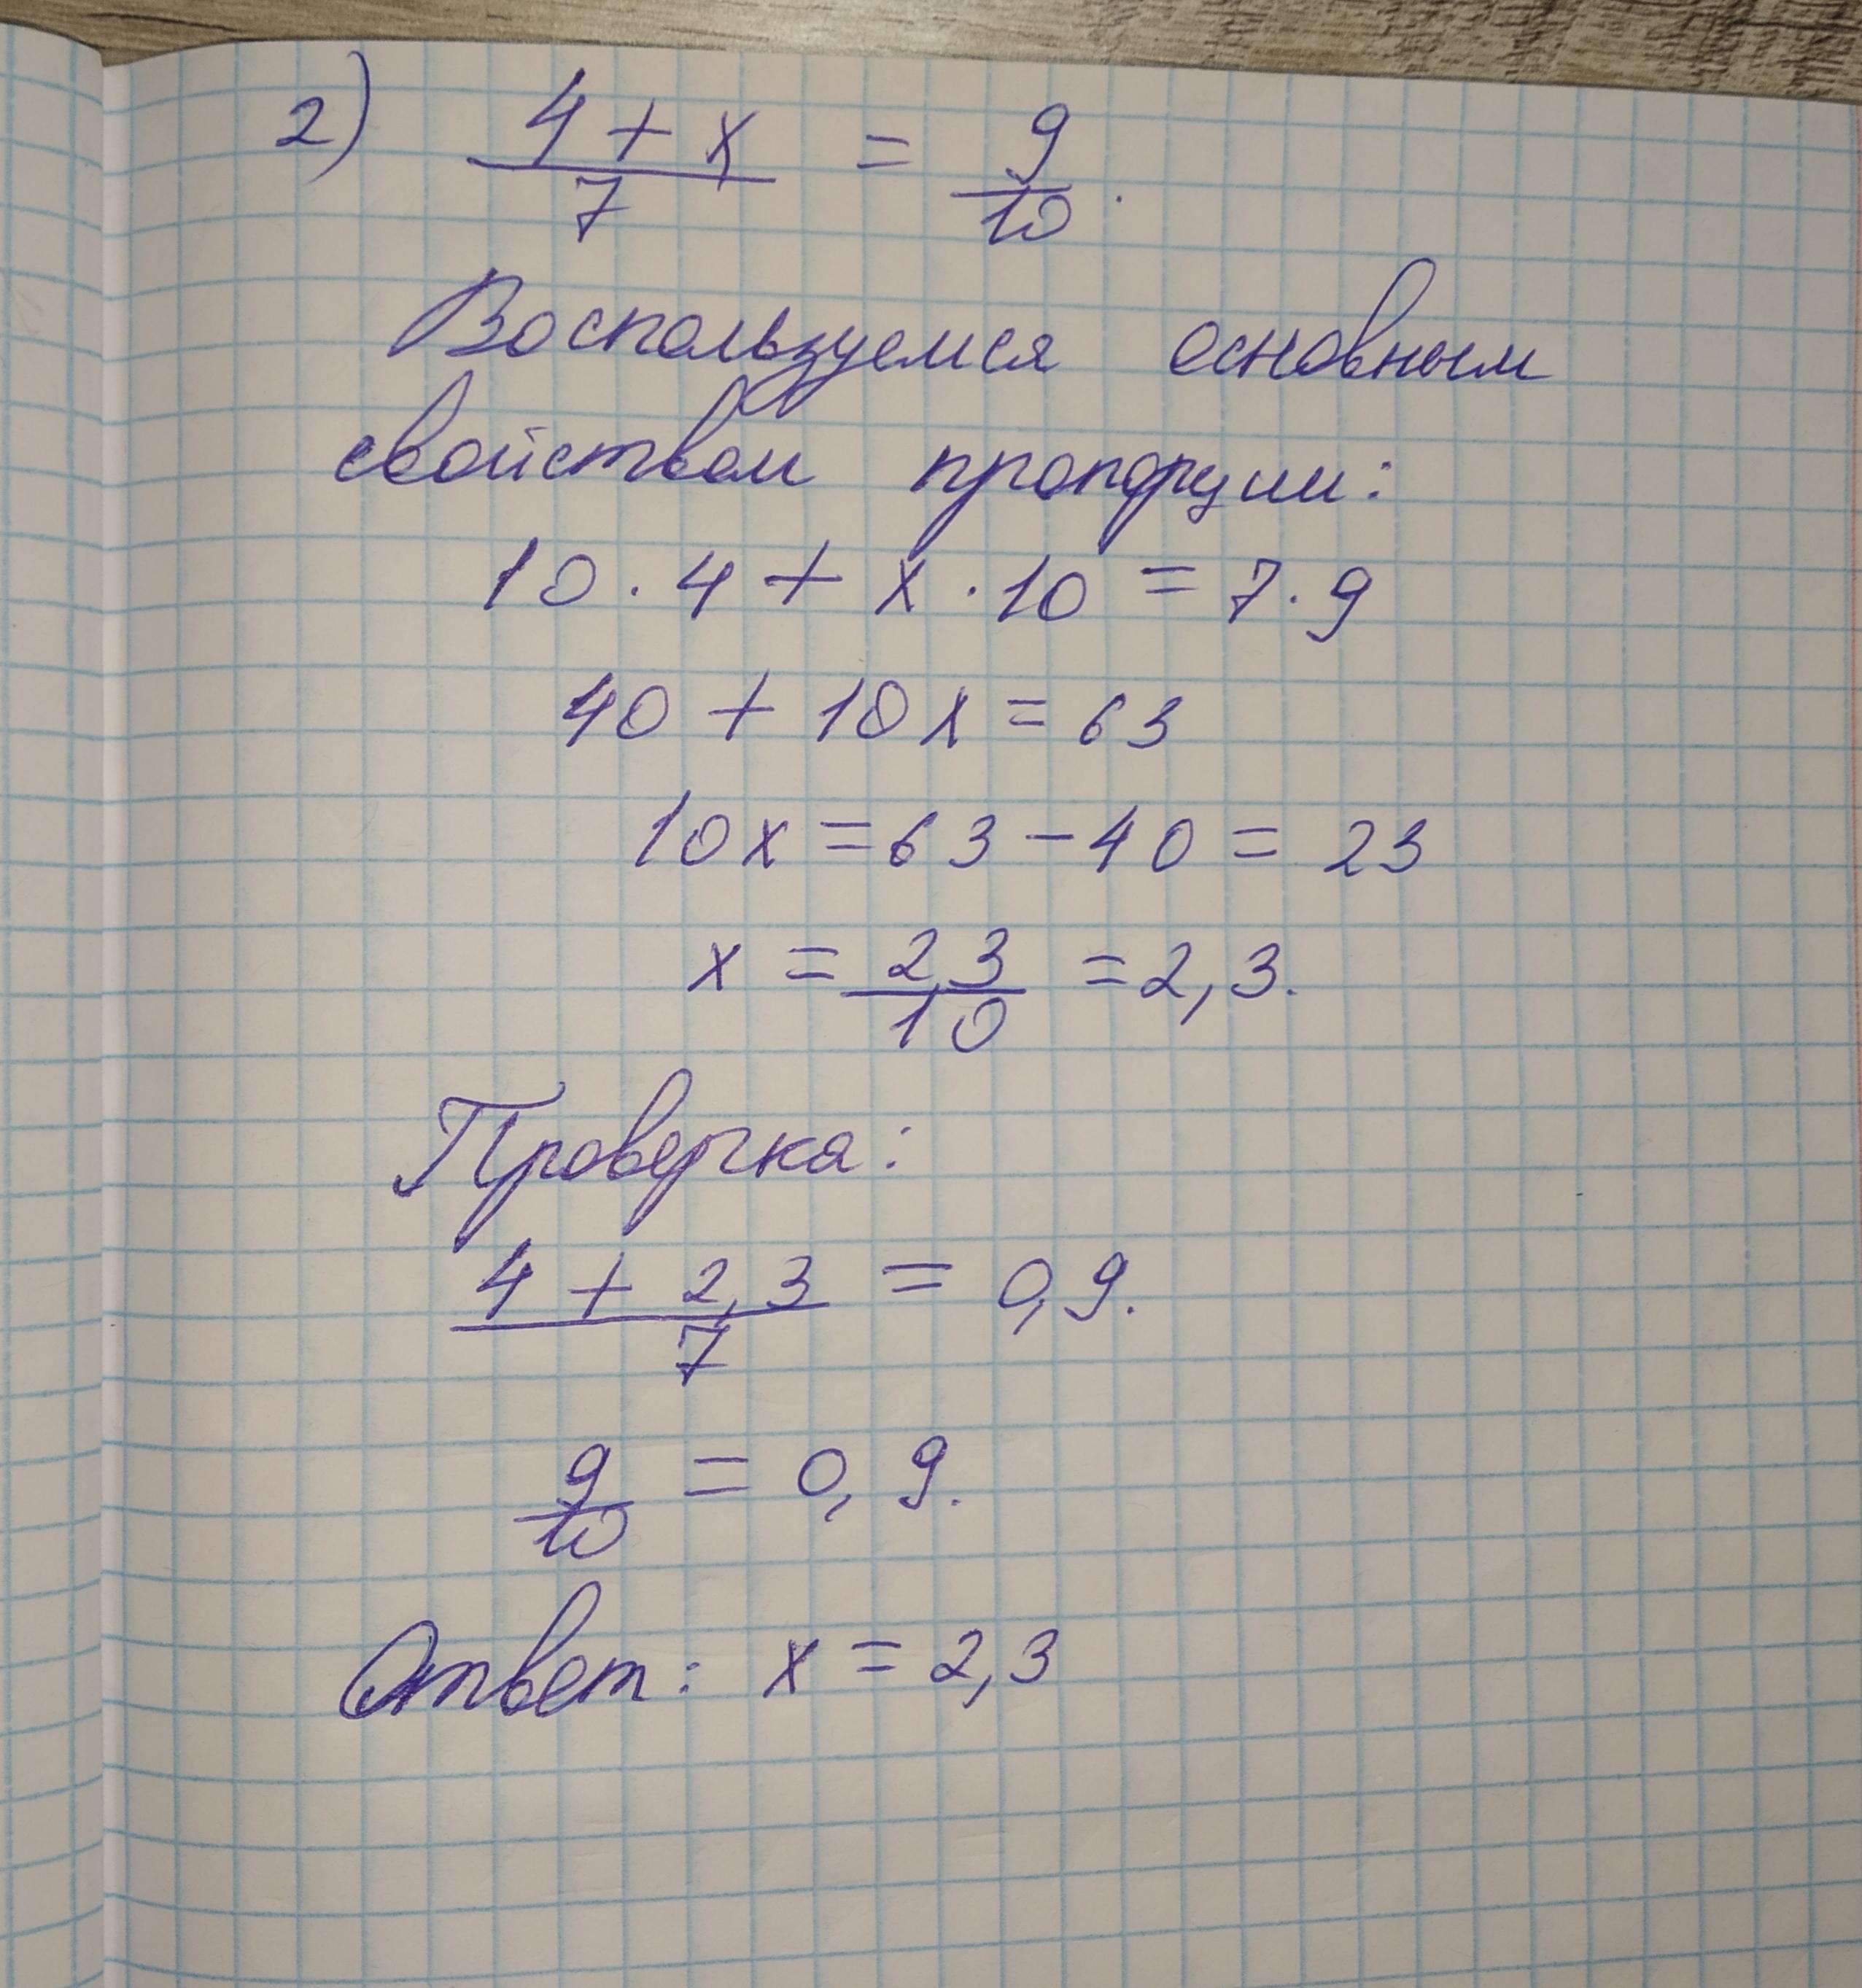 2) (4 + x)/7 = 9/10.
Воспользуемся основным
свойством пропорции:
10 · 4 + x · 10 = 7 · 9
40 + 10x = 63
10x = 63 - 40 = 23
x = 23/10 = 2,3.
Проверка:
(4 + 2,3)/7 = 0,9.
9/10 = 0,9.
Ответ: x = 2,3